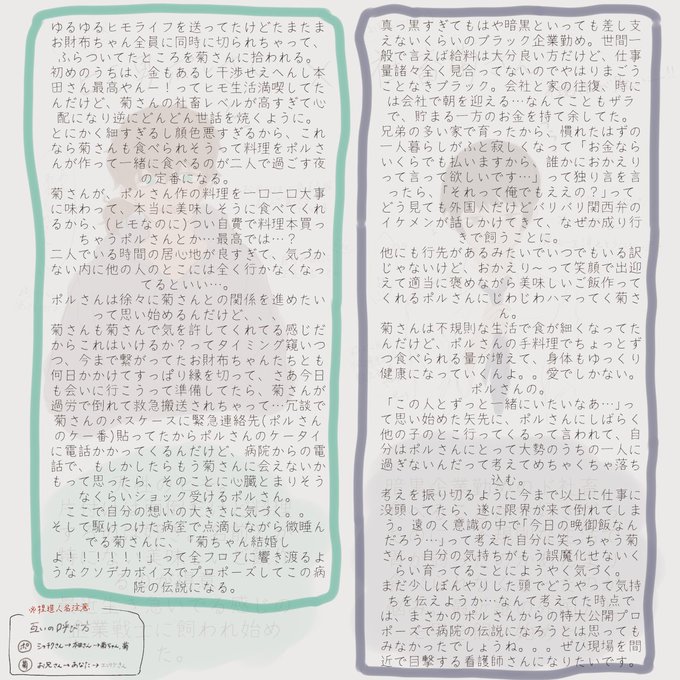 ゆるゆるヒモライフを送ってたけどたまたま
お財布ちゃん全員に同時に切られちゃって、
ふらついてたところを菊さんに拾われる。
初めのうちは、金もあるし干渉せえへんし本
田さん最高やんー!ってヒモ生活満喫してた
んだけど、菊さんの社畜レベルが高すぎて心
配になり逆にどんどん世話を焼くように。
とにかく細すぎるし顔色悪すぎるから、これ
なら菊さんも食べられそうって料理をポルさ
んが作って一緒に食べるのが二人で過ごす夜
の定番になる。
菊さんが、ポルさん作の料理を一口一口大事
に味わって、本当に美味しそうに食べてくれ
るから、(ヒモなのに)つい自費で料理本買っ
ちゃうポルさんとか…最高では…?
二人でいる時間の居心地が良すぎて、気づか
ない内に他の人のとこには全く行かなくなっ
てるといい…。
ポルさんは徐々に菊さんとの関係を進めたい
って思い始めるんだけど、、、
菊さんも菊さんで気を許してくれてる感じだ
からこれはいけるか?ってタイミング窺いつ
つ、今まで繋がってたお財布ちゃんたちとも
何日かかけてすっぱり縁を切って、さあ今日
も会いに行こうって準備してたら、菊さんが
過労で倒れて救急搬送されちゃって…冗談で
菊さんのパスケースに緊急連絡先(ポルさん
のケー番)貼ってたからポルさんのケータイ
に電話かかってくるんだけど、病院からの電
話で、もしかしたらもう菊さんに会えないか
もって思ったら、そのことに心臓とまりそう
なくらいショック受けるポルさん。
ここで自分の想いの大きさに気づく。。
そして駆けつけた病室で点滴しながら微睡ん
でる菊さんに、「菊さん結婚し
よ!!!!!!」って全フロアに響き渡るよ
うなクソデカボイスでプロポーズしてこの病
院の伝説になる。
真っ黒すぎてもはや暗黒といっても差し支
えないくらいのブラック企業勤め。世間一
般で言えば給料は大分良い方だけど、仕事
量諸々全く見合ってないのでやはりまごう
ことなきブラック。会社と家の往復、時に
は会社で朝を迎える…なんてこともザラ
で、貯まる一方のお金を持て余してた。
兄弟の多い家で育ったから、慣れたはずの
一人暮らしがふと寂しくなって「お金なら
いくらでも払いますから、誰かにおかえり
って言って欲しいです…」って独り言を言
ったら、「それって俺でもええの?」って
どう見ても外国人だけどバリバリ関西弁の
イケメンが話しかけてきて、なぜか成り行
きで飼うことに。
他にも行先があるみたいでいつでもいる訳
じゃないけど、おかえり~って笑顔で出迎
えて適当に褒めながら美味しいご飯作って
くれるポルさんにじわじわハマってく菊さ
ん。
菊さんは不規則な生活で食が細くなってた
んだけど、ポルさんの手料理でちょっとず
つ食べられる量が増えて、身体もゆっくり
健康になっていくんよ。。愛でしかない。
ポルさんの。
「この人とずっと一緒にいたいなあ…」っ
て思い始めた矢先に、ポルさんにしばらく
他の子のとこ行ってくるって言われて、自
分はポルさんにとって大勢のうちの一人に
過ぎないんだって考えてめちゃくちゃ落ち
込む。
考えを振り切るように今まで以上に仕事に
没頭してたら、遂に限界が来て倒れてしま
う。遠のく意識の中で「今日の晩御飯なん
だろう…」って考えた自分に笑っちゃう菊
さん。自分の気持ちがもう誤魔化せないく
らい育ってることにようやく気づく。
まだ少しぼんやりした頭でどうやって気持
ちを伝えようか…なんて考えてた時点で
は、まさかのポルさんからの特大公開プロ
ポーズで病院の伝説になろうとは思っても
みなかったでしょうね。。。ぜひ現場を間
近で目撃する看護師さんになりたいです。
※捏造人名注意
互いの呼び方
ポ シャチクさん→本田さん→菊ちゃん、菊
菊 お兄さん→あなた→